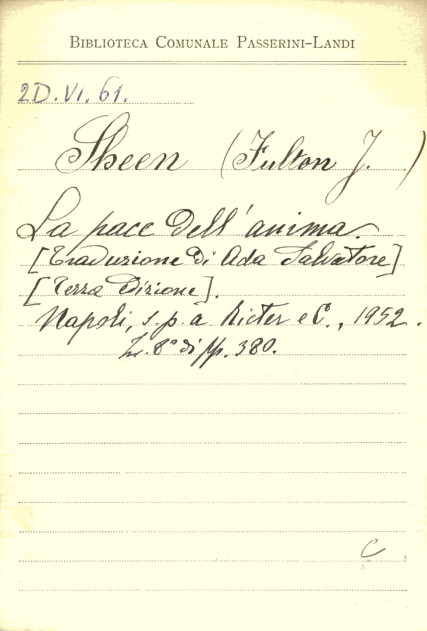 BIBLIOTECA COMUNALE PASSERINI-LANDI
2D.VI.61.
Sheen (Fulton J.)
La pace dell'anima.
[Traduzione di Ada Salvatore]
[Terza Edizione].
Napoli, s.p.a. Richter e C., 1952.
In 8° di pp. 380.
C